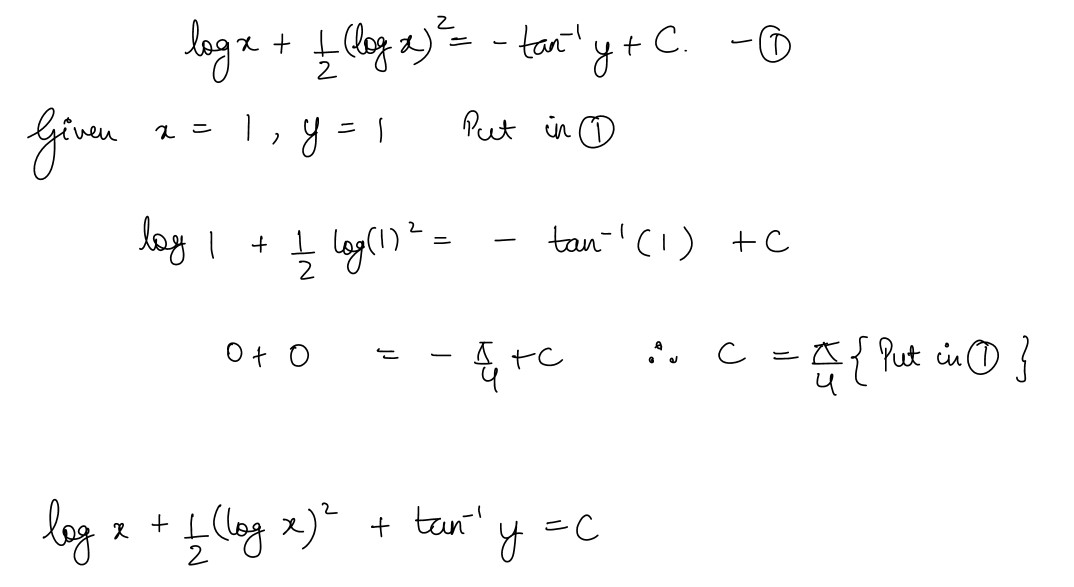 log x + 1/2 (log x)² = - tan⁻¹ y + C. - ①
Given x = 1, y = 1 Put in ①
log 1 + 1/2 log(1)² = - tan⁻¹ (1) + C
0 + 0 = - π/4 + C ∴ C = π/4 { Put in ① }
log x + 1/2 (log x)² + tan⁻¹ y = C